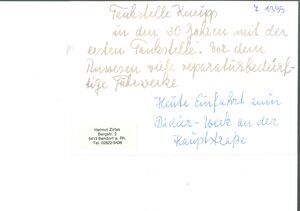 7 1999
Tankstelle Knupp
in den 30 Jahren mit der
ersten Tankstelle. Vor dem
Anwesen viele reparaturbedürf-
tige Fuhrwerke
Heute Einfahrt zum
Didier-Werk an der
Hauptstraße
Helmut Zirfas
Bergstr. 3
5413 Bendorf a. Rh.
Tel. 02622/5436